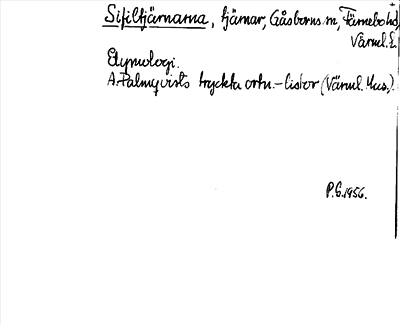 Sifiltjärnarna, tjärnar, Gåsborns sn, Färnebo hd,
Värml. l.
Etymologi.
A. Palmqvists tryckta ortn.-listor (Värml. Mus.).
P.G. 1956.